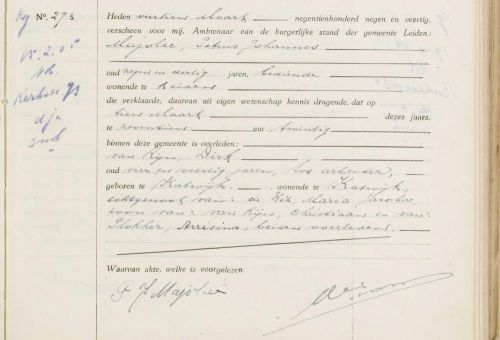 Nº. 273
Heden veertien Maart negentienhonderd negen en veertig,
verscheen voor mij, Ambtenaar van de burgerlijke stand der gemeente Leiden:
Majolee, Petrus Johannes
oud negen en dertig jaren, bediende
wonende te Leiden
die verklaarde, daarvan uit eigen wetenschap kennis dragende, dat op
tien Maart dezes jaars,
te zeventien uur twintig
binnen deze gemeente is overleden:
van Rijn, Dirk
oud vier en veertig jaren, los arbeider,
geboren te Katwijk, wonende te Katwijk,
echtgenoot van: de Wit, Maria Jacoba
zoon van: van Rijn, Christiaan en van:
Plokker, Arrisina, beiden overleden.
Waarvan akte, welke is voorgelezen.
P J Majolée